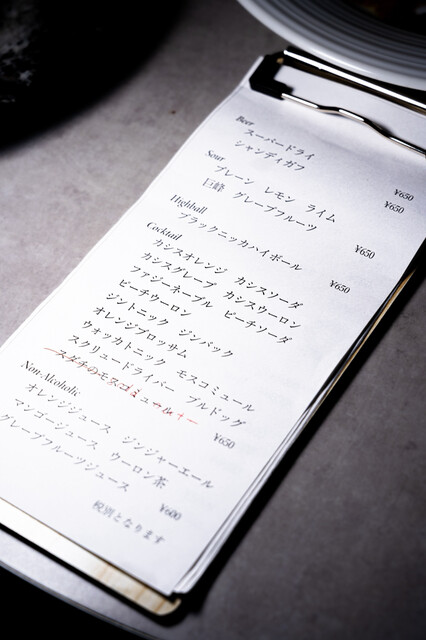 Beer
スーパードライ ¥650
シャンディガフ ¥650
Sour
プレーン レモン ライム
巨峰 グレープフルーツ ¥650
Highball
ブラックニッカハイボール ¥650
Cocktail
カシスオレンジ カシスソーダ
カシスグレープ カシスウーロン
ファジーネーブル ピーチソーダ
ピーチウーロン
ジントニック ジンバック
オレンジブロッサム
ウォッカトニック モスコミュール
スクリュードライバー ブルドッグ
スダチのモスコミュール ¥650
Non-Alcoholic
オレンジジュース ジンジャーエール
マンゴージュース ウーロン茶
グレープフルーツジュース ¥600
税別となります